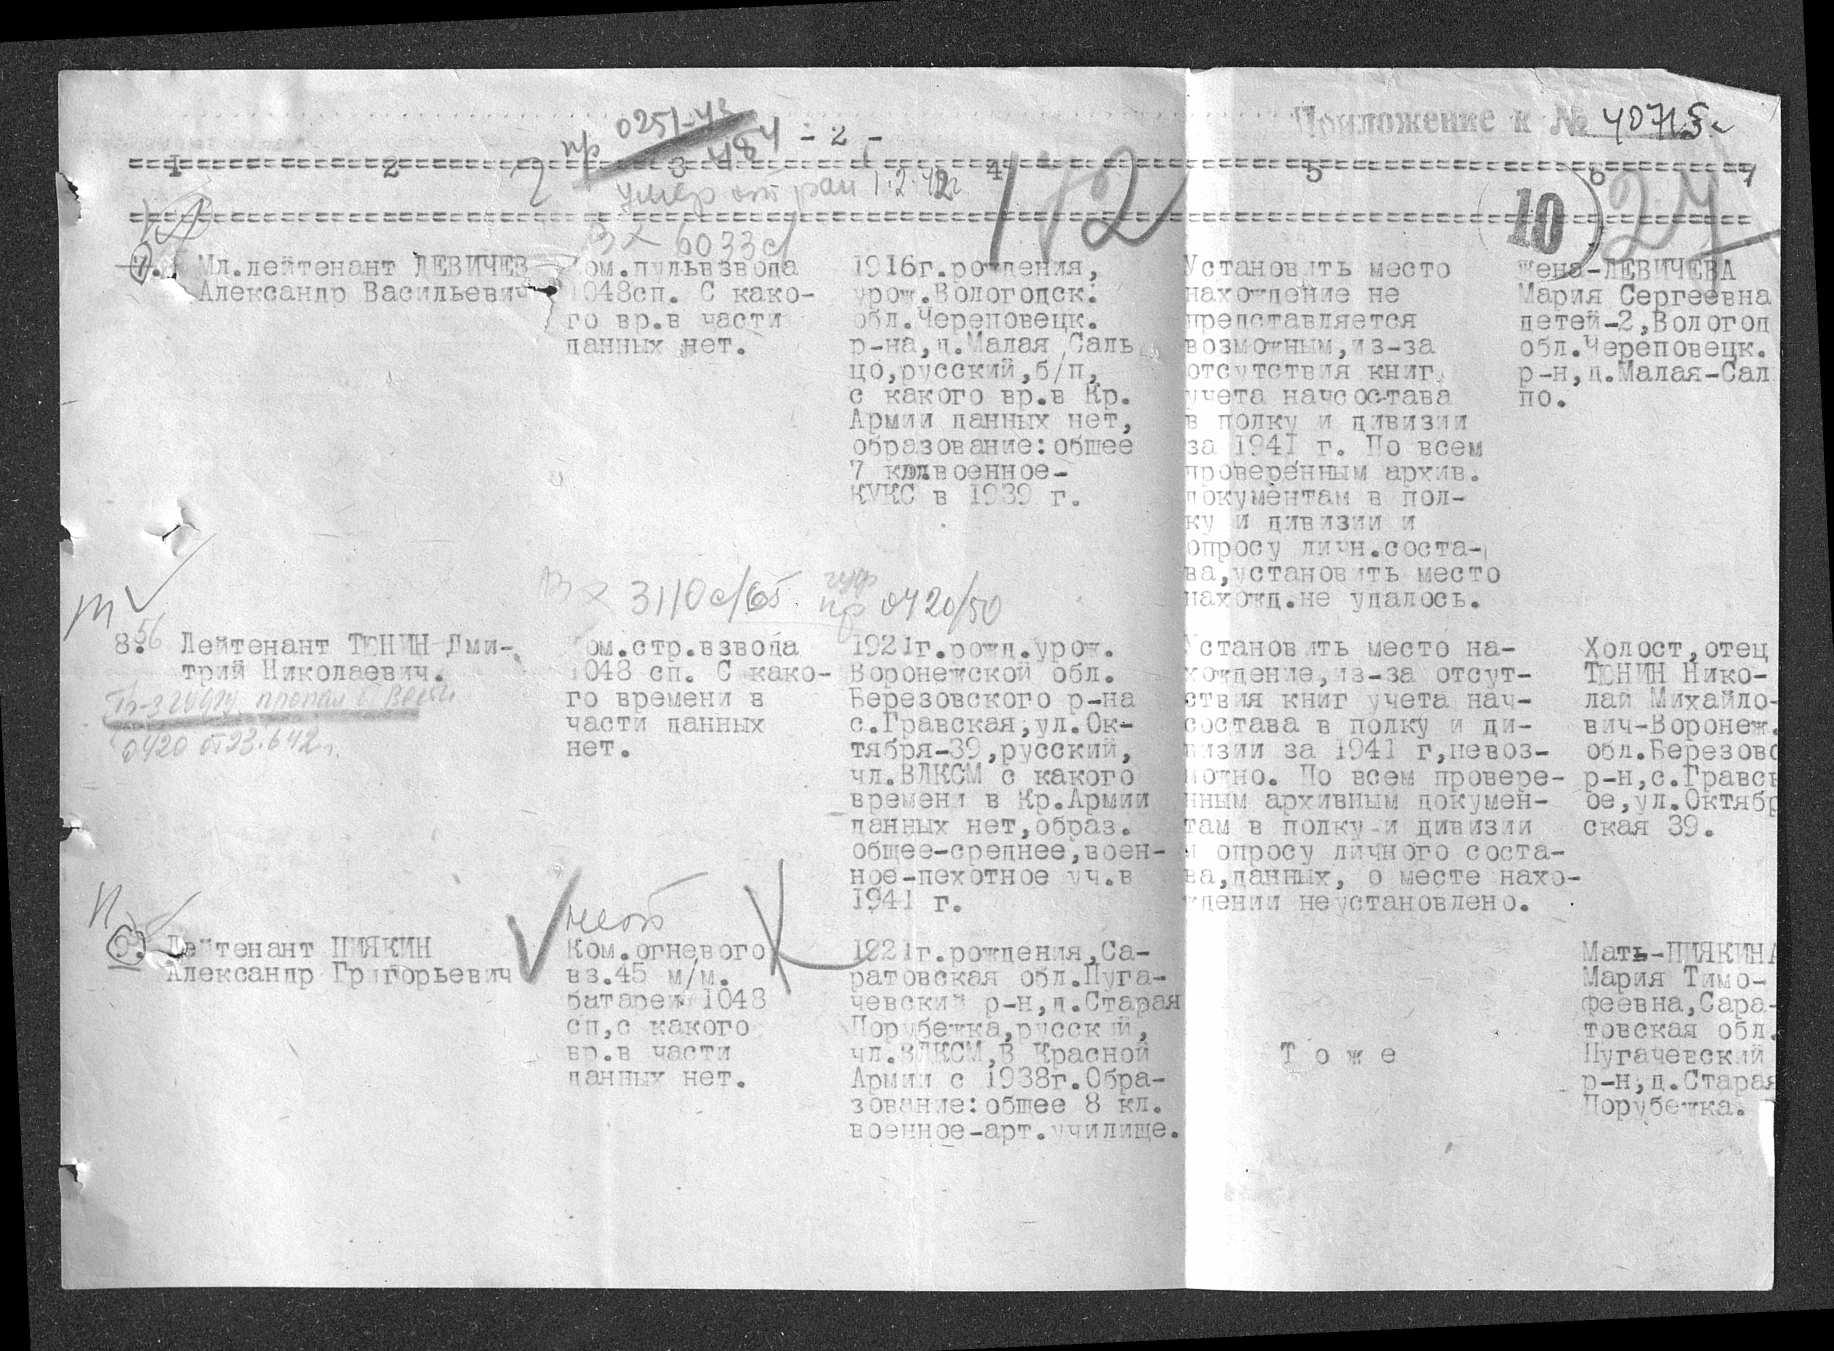 Приложение к № 40715с
пр 0251-42
484
- 2 -
1 2 3 4 5 6 7
умер от ран 1.2.42г.
112
(10)
24
Вх 6033с/
7. Мл.лейтенант ДЕВИЧЕВ
Александр Васильевич
Ком.пульвзвода
1048сп. С како-
го вр.в части
данных нет.
1916г.рождения,
урож.Вологодск.
обл.Череповецк.
р-на,д.Малая Саль
цо,русский,б/п,
с какого вр.в Кр.
Армии данных нет,
образование:общее
7 кл.военное-
КУКС в 1939 г.
Установить место
нахождение не
представляется
возможным,из-за
отсутствия книг
учета начсостава
в полку и дивизии
за 1941 г. По всем
проверенным архив.
документам в пол-
ку и дивизии и
опросу личн.соста-
ва,установить место
нахожд.не удалось.
Жена-ДЕВИЧЕВА
Мария Сергеевна
детей-2,Вологод
обл.Череповецк.
р-н,д.Малая-Сал
по.
Вх 3110с/65 пр 0420/50
8. 56 Лейтенант ТЮНИН Дми-
трий Николаевич.
пропал б вести
0420 от 23.6 42г.
Ком.стр.взвода
1048 сп. С како-
го времени в
части данных
нет.
1921г.рожд.урож.
Воронежской обл.
Березовского р-на
с.Гравская,ул.Ок-
тября-39,русский,
чл.ВЛКСМ с какого
времени в Кр.Армии
данных нет,образ.
общее-среднее,воен-
ное-пехотное уч.в
1941 г.
Установить место на-
хождение,из-за отсут-
ствия книг учета нач-
состава в полку и ди-
визии за 1941 г,невоз-
можно. По всем провере-
нным архивным докумен-
там в полку и дивизии
и опросу личного соста-
ва,данных, о месте нахо-
ждении неустановлено.
Холост,отец
ТЮНИН Нико-
лай Михайло-
вич-Воронеж.
обл.Березовс
р-н,с.Гравск
ое,ул.Октябр
ская 39.
9. Лейтенант ПИЯКИН
Александр Григорьевич
Ком.огневого
вз.45 м/м.
батареи 1048
сп,с какого
вр.в части
данных нет.
1921г.рождения,Са-
ратовская обл.Пуга-
чевский р-н,д.Старая
Порубежка,русский,
чл.ВЛКСМ,В Красной
Армии с 1938г.Обра-
зование:общее 8 кл.
военное-арт.училище.
Т о ж е
Мать-ПИЯКИНА
Мария Тимо-
феевна,Сара-
товская обл.
Пугачевский
р-н,д.Старая
Порубежка.